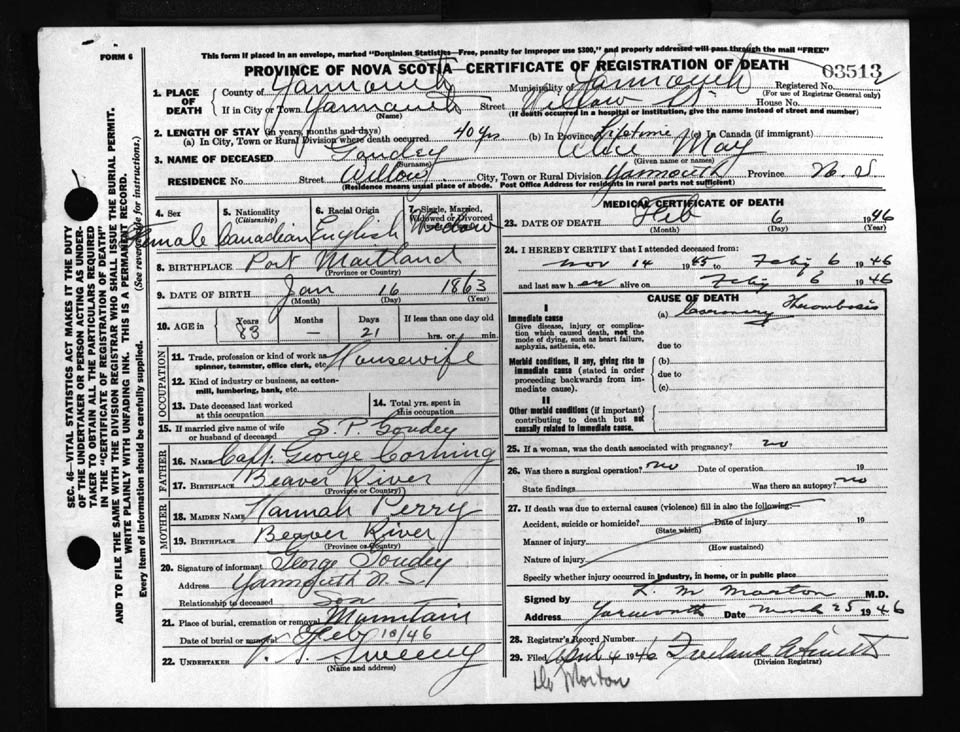 FORM 6
This form if placed in an envelope, marked "Dominion Statistics—Free, penalty for improper use $300," and properly addressed will pass through the mail "FREE"
PROVINCE OF NOVA SCOTIA—CERTIFICATE OF REGISTRATION OF DEATH
03513
1. PLACE OF DEATH
County of Yarmouth Municipality of Yarmouth Registered No.
(For use of Registrar General only)
If in City or Town Yarmouth Street Willow St. House No.
(Name) (If death occurred in a hospital or institution, give the name instead of street and number)
2. LENGTH OF STAY (in years, months and days)
(a) In City, Town or Rural Division where death occurred 40 yrs (b) In Province Lifetime (c) In Canada (if immigrant)
3. NAME OF DECEASED Goudey May
(Surname) (Given name or names)
RESIDENCE No. Street Willow City, Town or Rural Division Yarmouth Province N. S
(Residence means usual place of abode. Post Office Address for residents in rural parts not sufficient)
4. Sex Female
5. Nationality (Citizenship) Canadian
6. Racial Origin English
7. Single, Married, Widowed or Divorced Widow
8. BIRTHPLACE Port Maitland
(Province or Country)
9. DATE OF BIRTH Jan 16 1863
(Month) (Day) (Year)
10. AGE in Years 83 Months — Days 21 If less than one day old
hrs. or min.
OCCUPATION
11. Trade, profession or kind of work as spinner, teamster, office clerk, etc. Housewife
12. Kind of industry or business, as cotton-mill, lumbering, bank, etc.
13. Date deceased last worked at this occupation
14. Total yrs. spent in this occupation
15. If married give name of wife or husband of deceased S. P. Goudey
FATHER
16. Name Capt. George Corning
17. Birthplace Beaver River
(Province or Country)
MOTHER
18. MAIDEN NAME Hannah Perry
19. Birthplace Beaver River
(Province or Country)
20. Signature of informant George Goudey
Address Yarmouth N. S.
Relationship to deceased Son
21. Place of burial, cremation or removal Mountain
Date of burial or removal Feb 10/46
22. UNDERTAKER V. S. Sweeny
(Name and address)
MEDICAL CERTIFICATE OF DEATH
23. DATE OF DEATH Feb 6 1946
(Month) (Day) (Year)
24. I HEREBY CERTIFY that I attended deceased from:
Nov 14 1945 to Feby 6 1946
and last saw her alive on Feby 6 1946
CAUSE OF DEATH
I
Immediate cause (a) Coronary Thrombosis
Give disease, injury or complication which caused death, not the mode of dying, such as heart failure, asphyxia, asthenia, etc.
due to
Morbid conditions, if any, giving rise to immediate cause (stated in order proceeding backwards from immediate cause).
(b)
due to
(c)
II
Other morbid conditions (if important) contributing to death but not causally related to immediate cause.
25. If a woman, was the death associated with pregnancy? no
26. Was there a surgical operation? no Date of operation 19
State findings Was there an autopsy? no
27. If death was due to external causes (violence) fill in also the following:—
Accident, suicide or homicide? Date of injury 19
(State which)
Manner of injury
(How sustained)
Nature of injury
Specify whether injury occurred in industry, in home, or in public place
Signed by L. M. Morton M.D.
Address Yarmouth Date March 25 1946
28. Registrar's Record Number
29. Filed April 4 1946 Freeland
(Division Registrar)
Dr Morton
SEC. 46—VITAL STATISTICS ACT MAKES IT THE DUTY
OF THE UNDERTAKER OR PERSON ACTING AS UNDER-
TAKER TO OBTAIN ALL THE PARTICULARS REQUIRED
IN THE "CERTIFICATE OF REGISTRATION OF DEATH"
AND TO FILE THE SAME WITH THE DIVISION REGISTRAR WHO SHALL ISSUE THE BURIAL PERMIT.
WRITE PLAINLY WITH UNFADING INK. THIS IS A PERMANENT RECORD.
Every item of information should be carefully supplied. (See reverse side for instructions.)